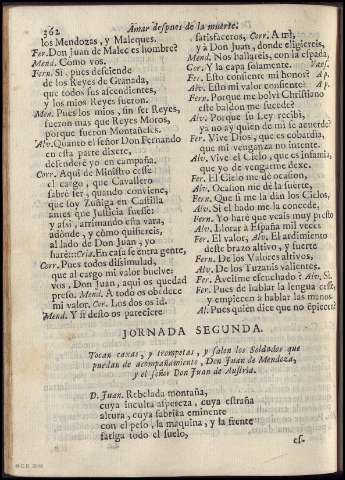 362
Amar despues de la muerte.
los Mendozas, y Maleques.
Fer. Don Juan de Malec es hombre?
Mend. Como vos.
Fern. Si, pues desciende
de los Reyes de Granada,
que todos sus ascendientes,
y los mios Reyes fueron.
Men. Pues los mios, sin ser Reyes,
fueron mas que Reyes Moros,
porque fueron Montañeses.
Alv. Quanto el señor Don Fernando
en esta parte dixere,
defenderé yo en campaña.
Corr. Aqui de Ministro cesse
el cargo, que Cavallero
sabré ser, quando conviene,
que soy Zuñiga en Castilla
antes que Justicia fuesse:
y assi, arrimando esta vara,
adonde, y cómo quisiereis,
al lado de Don Juan, yo
haré::: Cria. En casa se entra gente.
Corr. Pues todos dissimulad,
que al cargo mi valor buelve:
vos, Don Juan, aqui os quedad
preso. Mend. A todo os obedece
mi valor. Cor. Los dos os id.
Mend. Y si desto os pareciere
satisfaceros, Corr. A mi,
y à Don Juan, donde eligiereis,
Mend. Nos hallareis, con la espada,
Cor. Y la capa solamente. Vase.
Fer. Esto consiente mi honor? Ap.
Alv. Esto mi valor consiente? Ap.
Fern. Porque me bolví Christiano
este baldon me sucede?
Alv. Porque su Ley recibi,
ya no ay quien de mi se acuerde?
Fer. Vive Dios, que es cobardia,
que mi venganza no intente.
Alv. Vive el Cielo, que es infamia,
que yo de vengarme dexe.
Fer. El Cielo me dè ocasion,
Alv. Ocasion me dè la suerte,
Fern. Que si me la dán los Cielos,
Alv. Si el hado me la concede,
Fern. Yo haré que veais muy presto
Alv. Llorar à España mil veces
Fer. El valor, Alv. El ardimiento
deste brazo altivo, y fuerte
Fern. De los Valores altivos,
Alv. De los Tuzanis valientes.
Fer. Aveisme escuchado? Alv. Si.
Fer. Pues de hablar la lengua cesse,
y empiecen à hablar las manos.
Al. Pues quién dice que no empiecen?
JORNADA SEGUNDA.
Tocan caxas, y trompetas, y salen los Soldados que
puedan de acompañamiento, Don Juan de Mendoza,
y el señor Don Juan de Austria.
D. Juan. Rebelada montaña,
cuya inculta aspereza, cuya estraña
altura, cuya fabrica eminente
con el peso, la maquina, y la frente
fatiga todo el suelo,
es.